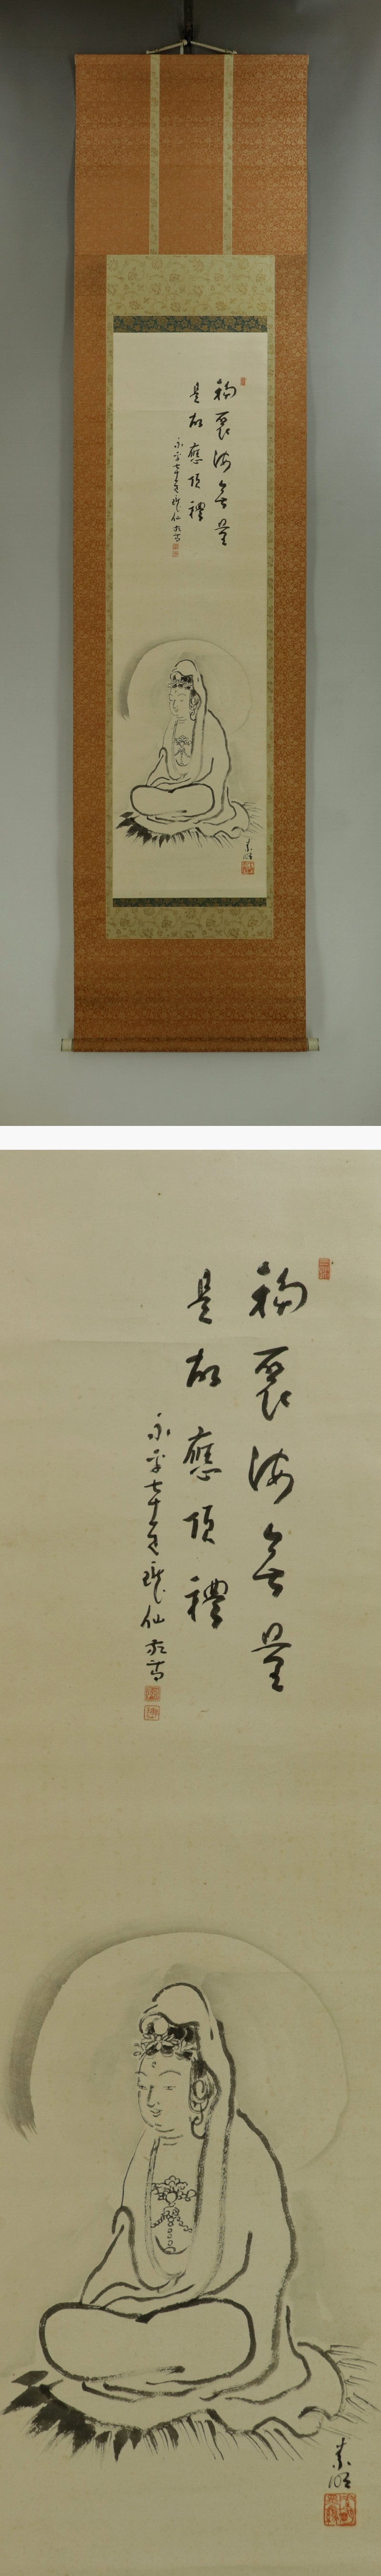 福聚海無量
是故應頂禮
永平七十一世瓏仙
素明
福聚海無量
是故應頂禮
永平七十一世瓏仙
素明